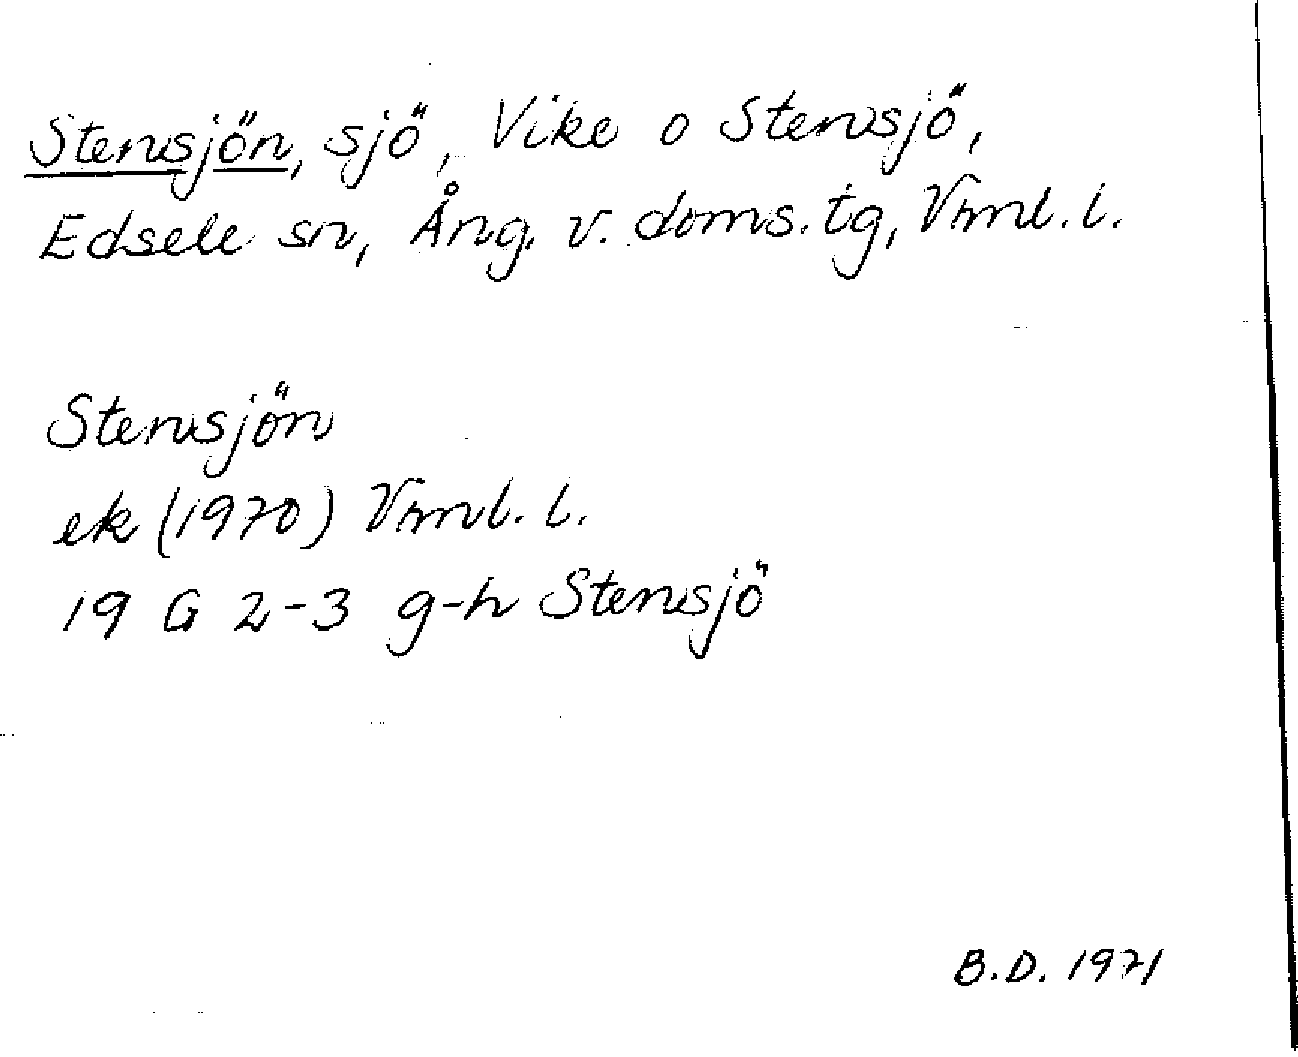 Stensjön, sjö, Vike o Stensjö,
Edsele sn, Ång. v. doms. tg, Vrml. l.
Stensjön
ek (1970) Vrml. l.
19 G 2-3 g-h Stensjö
B.D. 1971